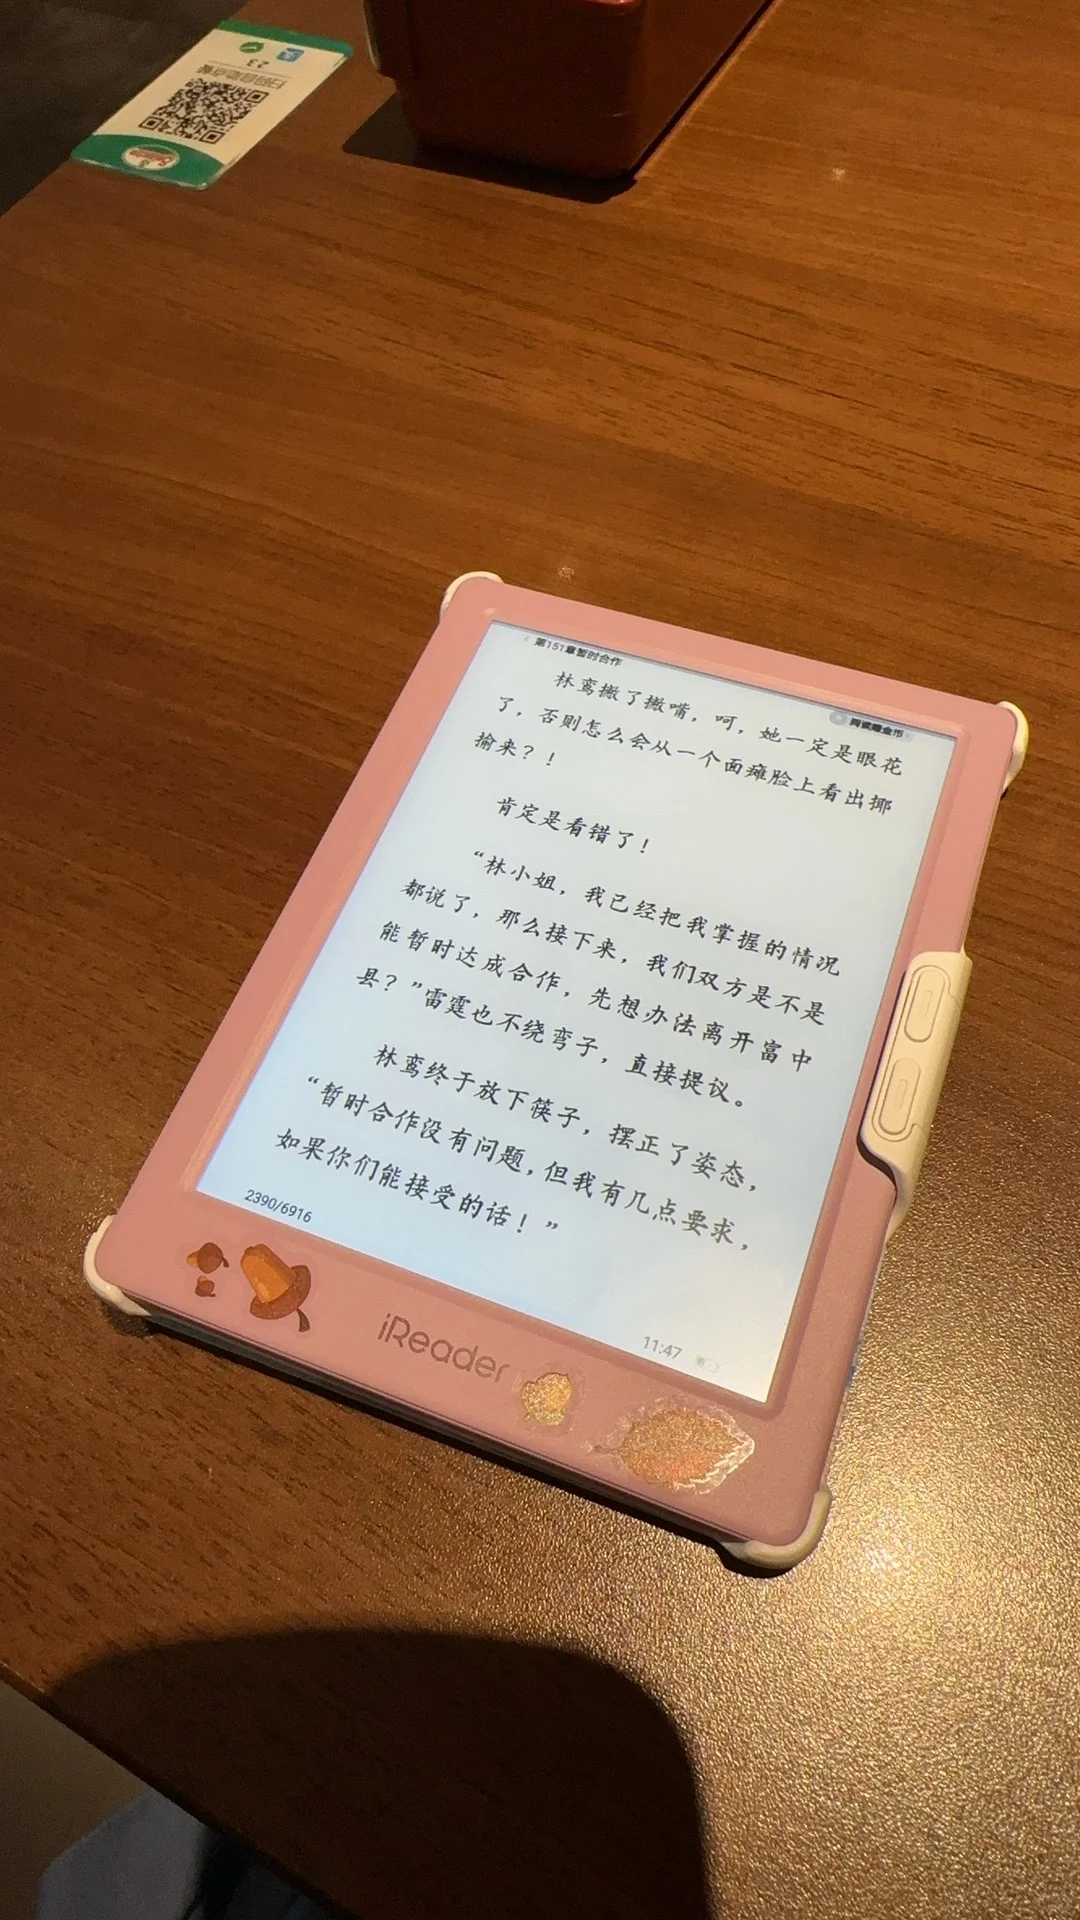 扫码自助点餐
23
第151章暂时合作
阅读赚金币
林鸾撇了撇嘴，呵，她一定是眼花
了，否则怎么会从一个面瘫脸上看出揶
揄来？！
肯定是看错了！
“林小姐，我已经把我掌握的情况
都说了，那么接下来，我们双方是不是
能暂时达成合作，先想办法离开富中
县？”雷霆也不绕弯子，直接提议。
林鸾终于放下筷子，摆正了姿态，
“暂时合作没有问题，但我有几点要求，
如果你们能接受的话！”
2390/6916
11:47
iReader